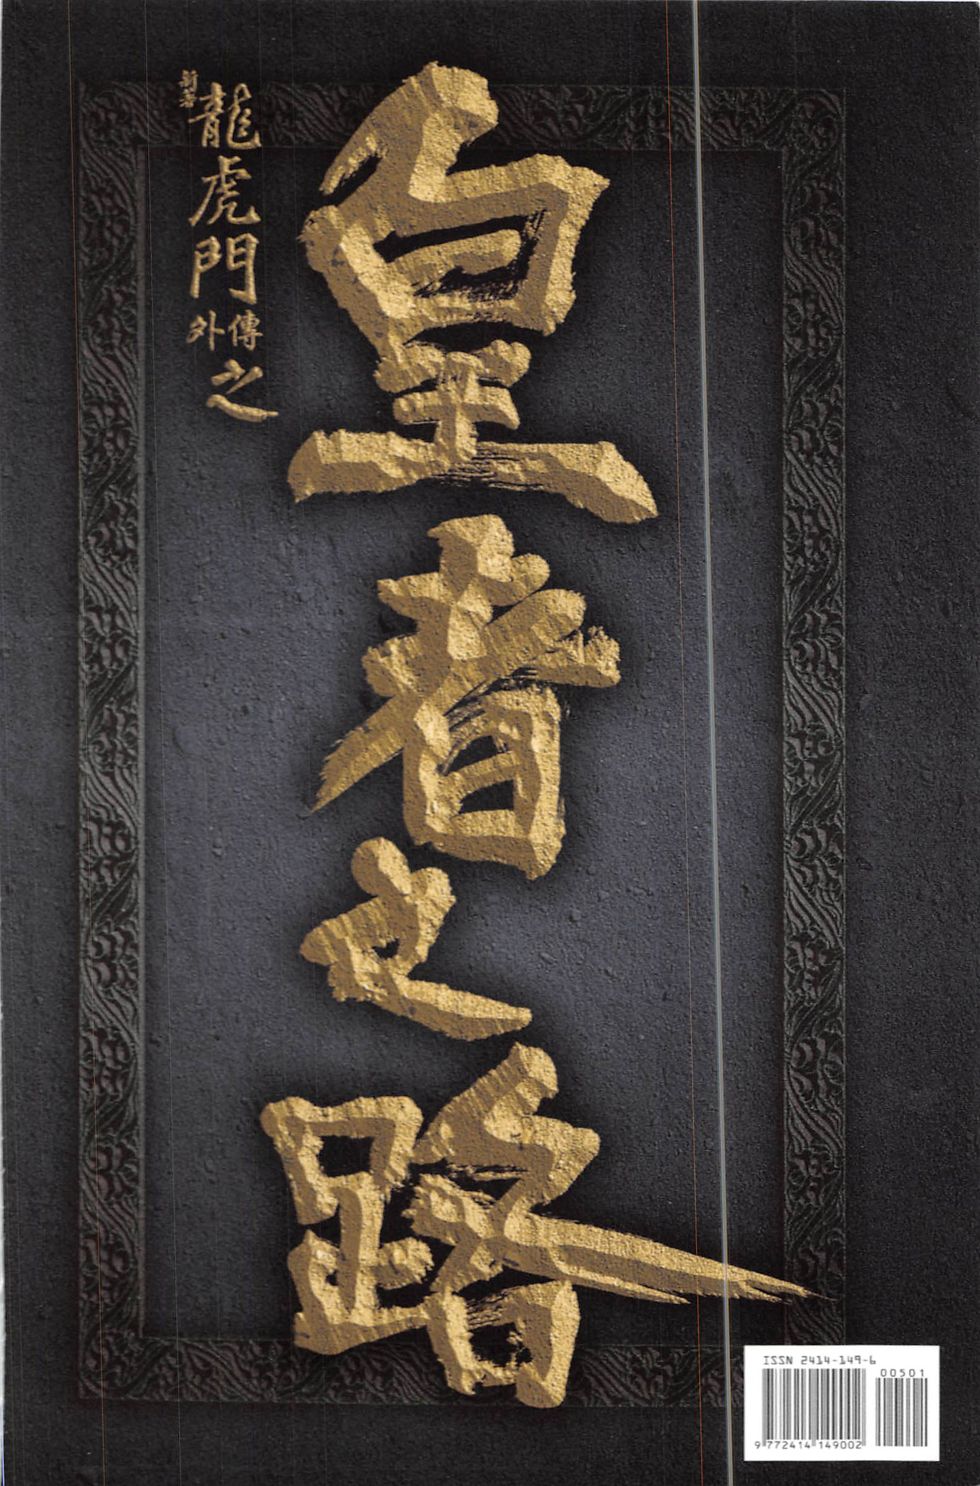 皇者之路
新著
龍虎門
外傳
之
ISSN 2414-149-6
00501
9 772414 149002